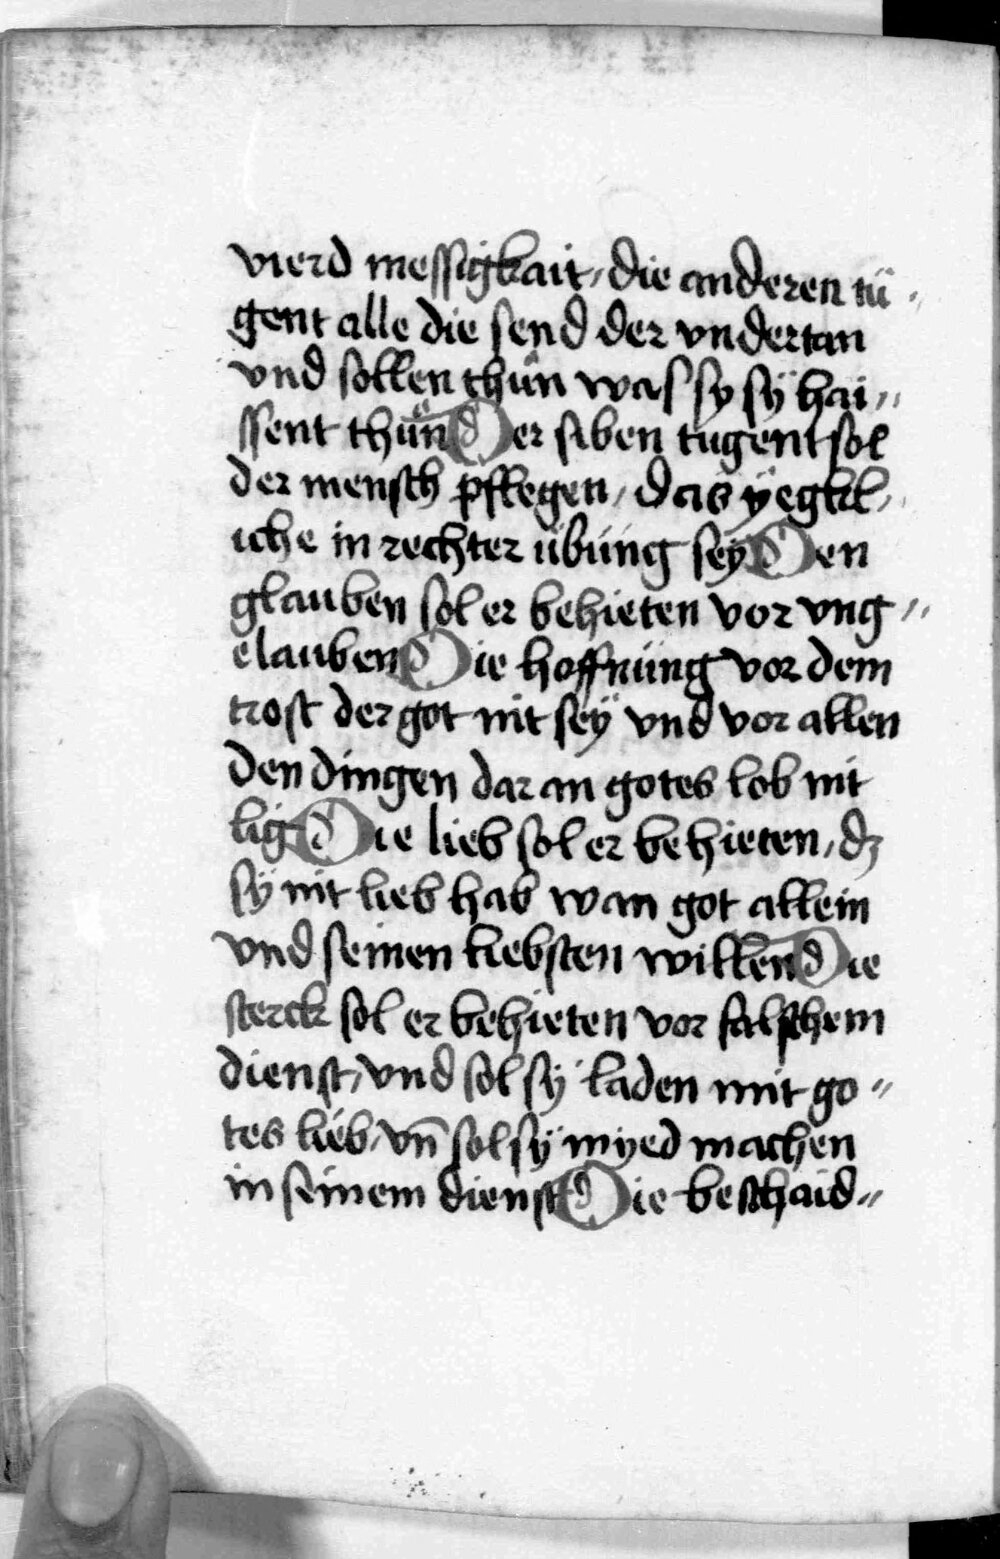 vierd messigkait, die anderen tu᷑ -
gent alle die send der vndertan
vnd sollen thu᷑n was sy sÿ hai „
ssent thu᷑n Der siben tugent sol
der mensch pflegen, das ÿegkl,
iche in rechter übüng seÿ Den
glauben sol er behieten vor vng „
elauben Die hoffnüng vor dem
trost der got nit seÿ vnd vor allen
den dingen dar an gotes lob nit
lig Die lieb sol er behieten, dʒ
sÿ nit lieb hab wan got allein
vnd seinen liebsten willen Die
sterck sol er behieten vor falschem
dienst, vnd sol sÿ laden mit go „
tes lieb, vn̄ sol sÿ myed machen
in seinem dienst Die beschaid „